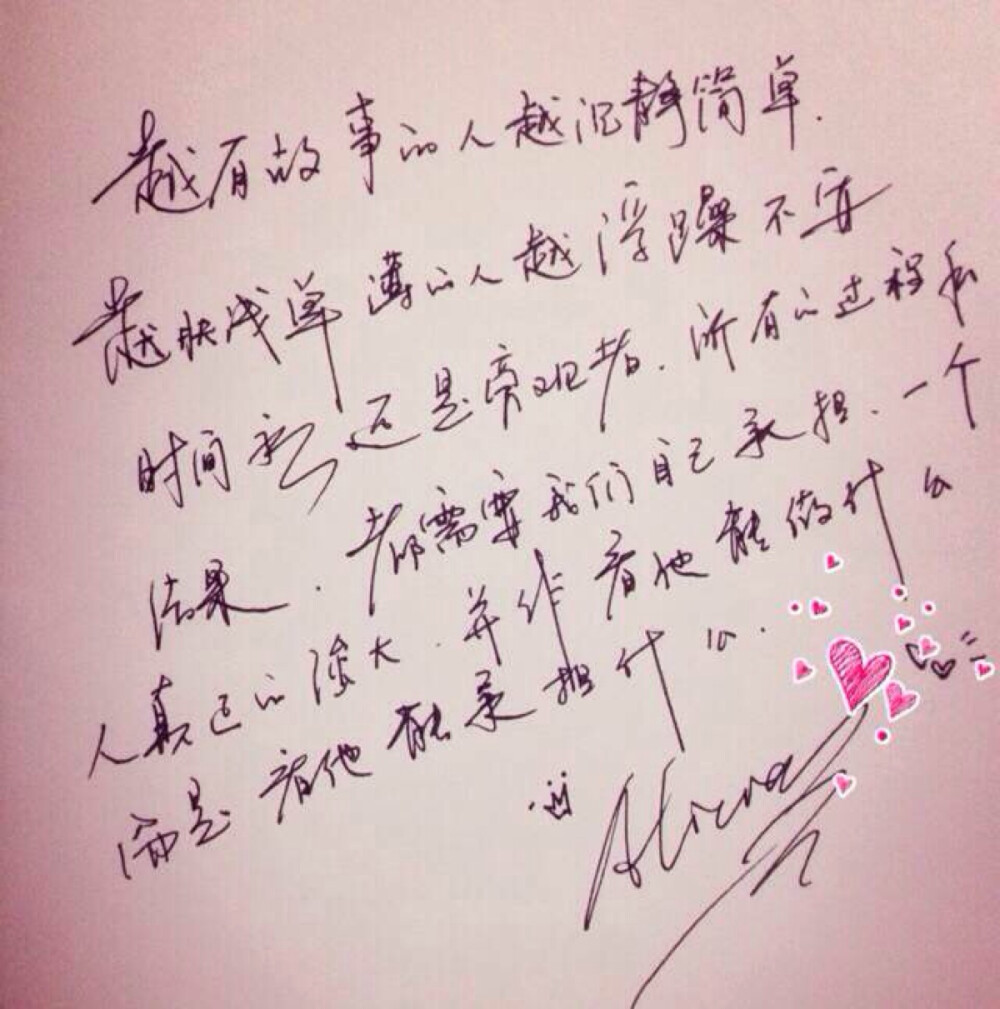 越有故事的人越沉静简单.
越肤浅单薄的人越浮躁不安
时间永远是旁观者.所有的过程和
结果.都需要我们自己承担.一个
人真正的强大.并非看他能做什么
而是看他能承担什么.